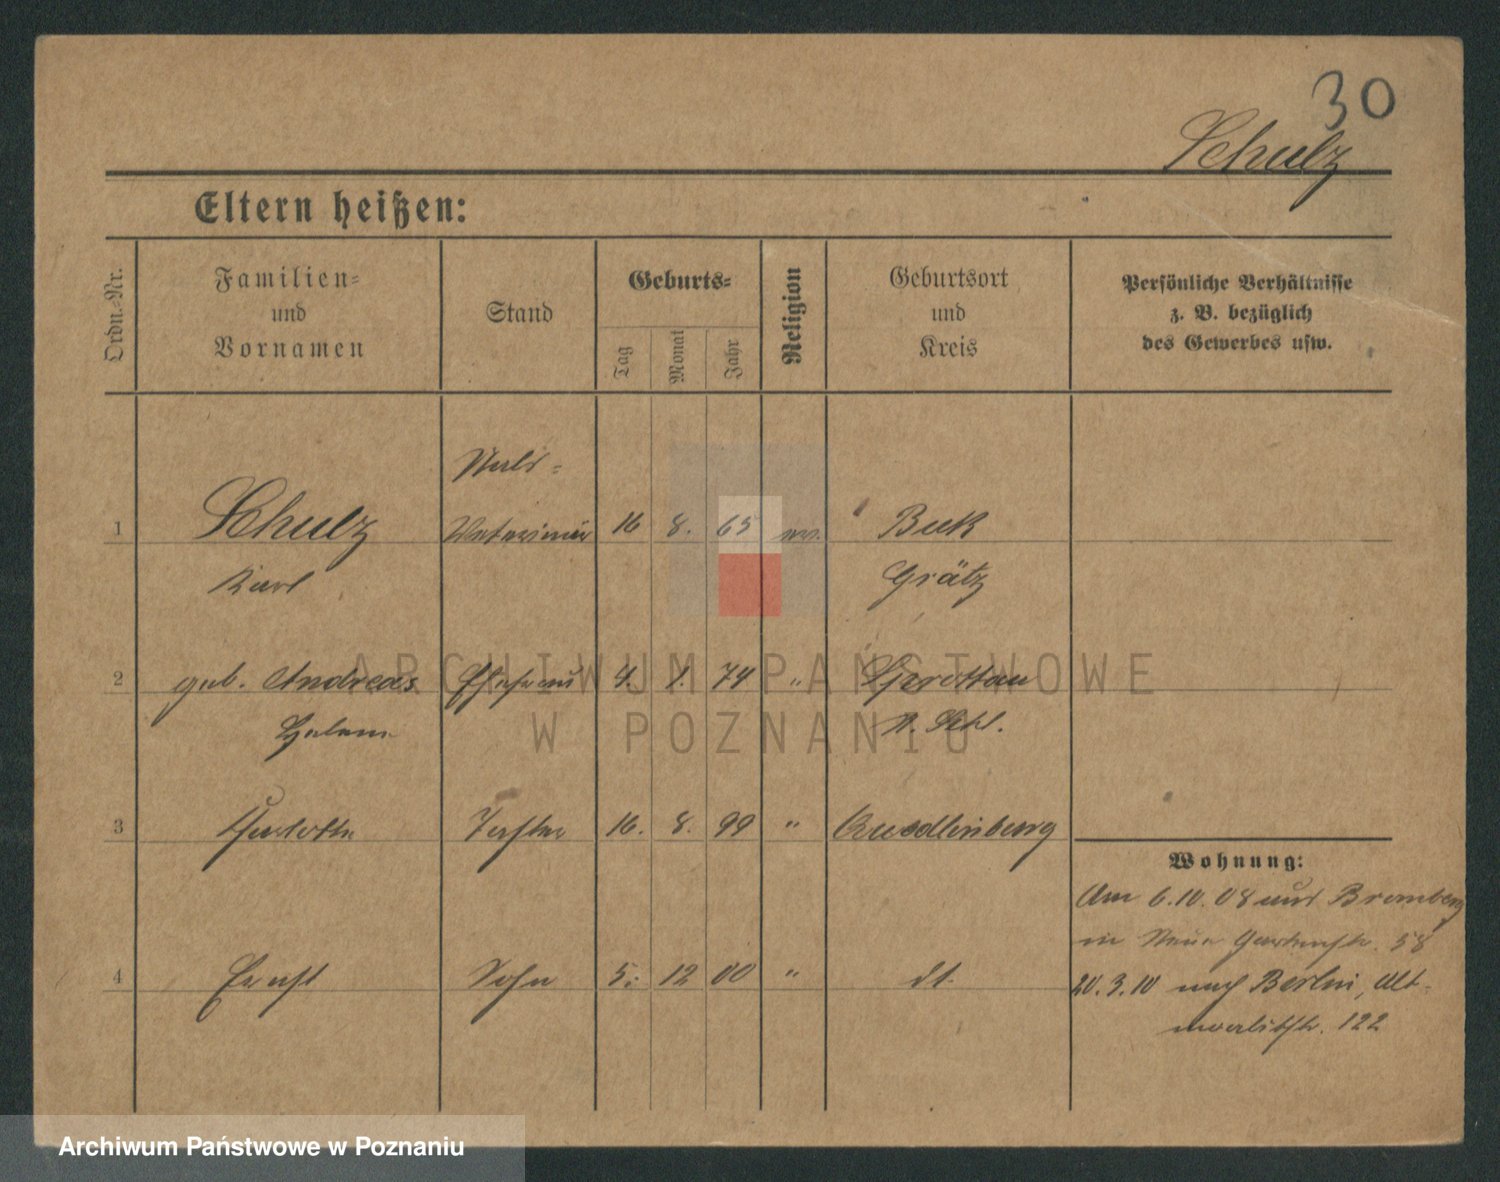 30
Schulz
Eltern heißen:
Ordn.-Nr.
Familien-
und
Vornamen
Stand
Geburts-
Tag
Monat
Jahr
Religion
Geburtsort
und
Kreis
Persönliche Verhältnisse
z. B. bezüglich
des Gewerbes usw.
1 Schulz Veterinär 16 8. 65 ev. Buk
Karl Grätz
2 geb. Andreas Ehefrau 4. 1. 74 " Grottau
Helene
3 Charlotte Tochter 16. 8. 99 " Quedlinburg
Wohnung:
Am 6.10.08 aus Bromberg
in Neue Gartenstr. 58
4 Ernst Sohn 5. 12 00 " dt.
20.3.10 nach Berlin, Alt-
moabitstr. 122
ARCHIWUM PAŃSTWOWE
W POZNANIU
Archiwum Państwowe w Poznaniu